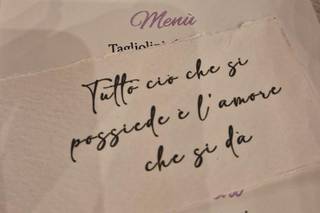 Menù
Tagliolini
Tutto ciò che si
possiede è l'amore
che si dà